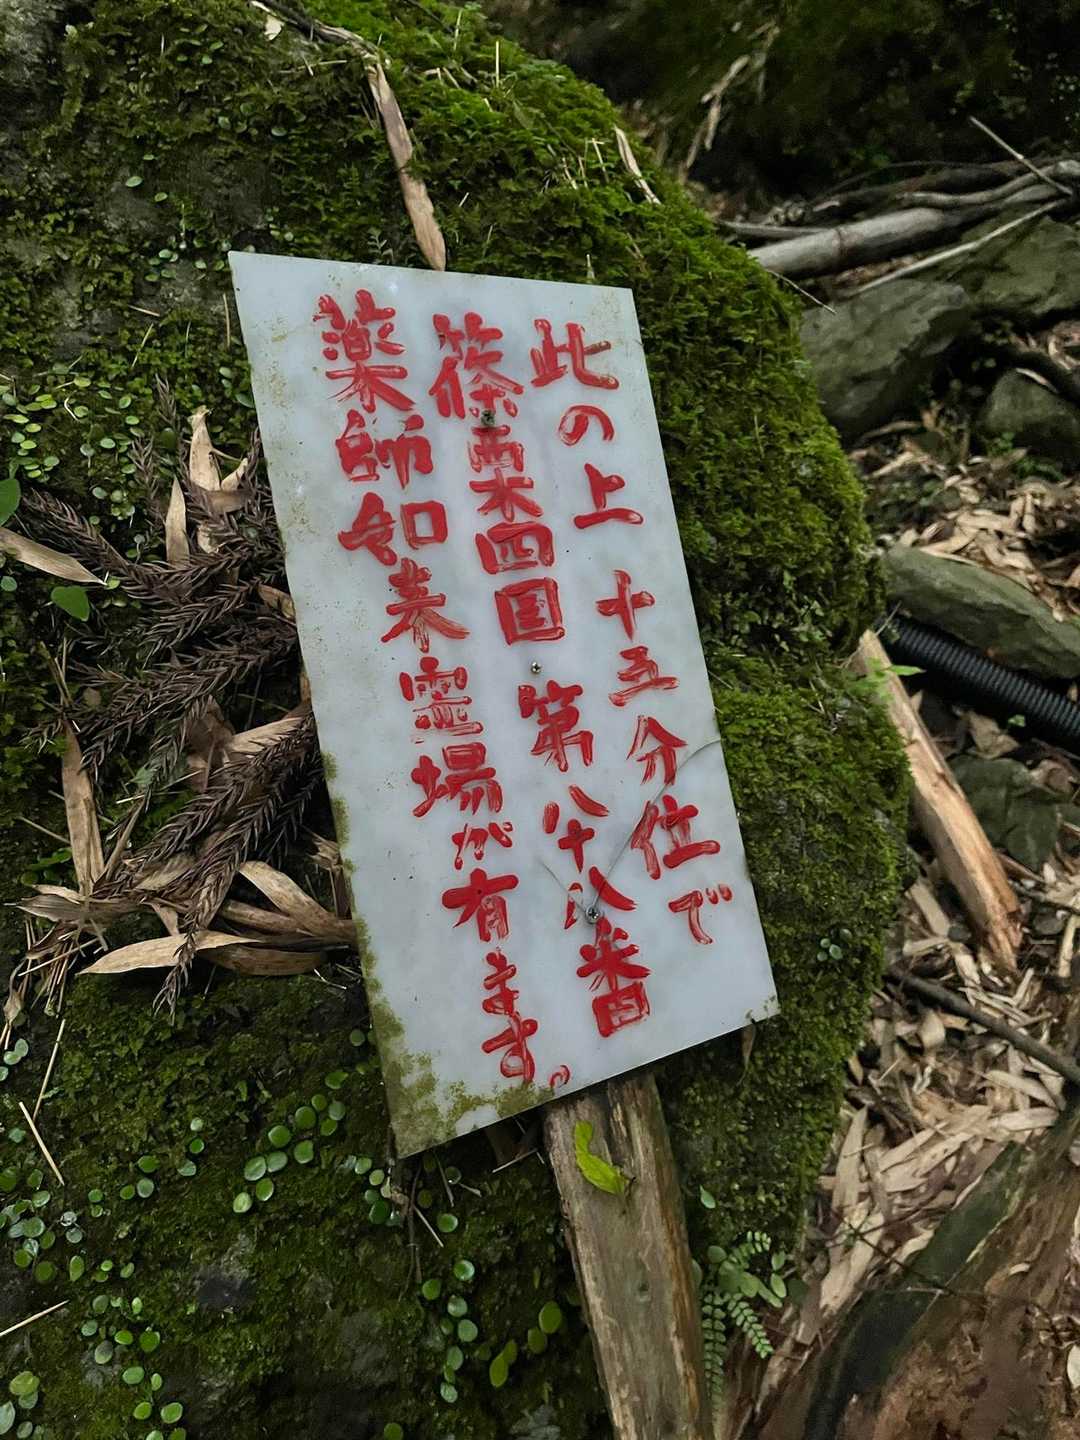 此の上 十五分位で
篠栗四国 第八十八番
薬師如来霊場が有ます。